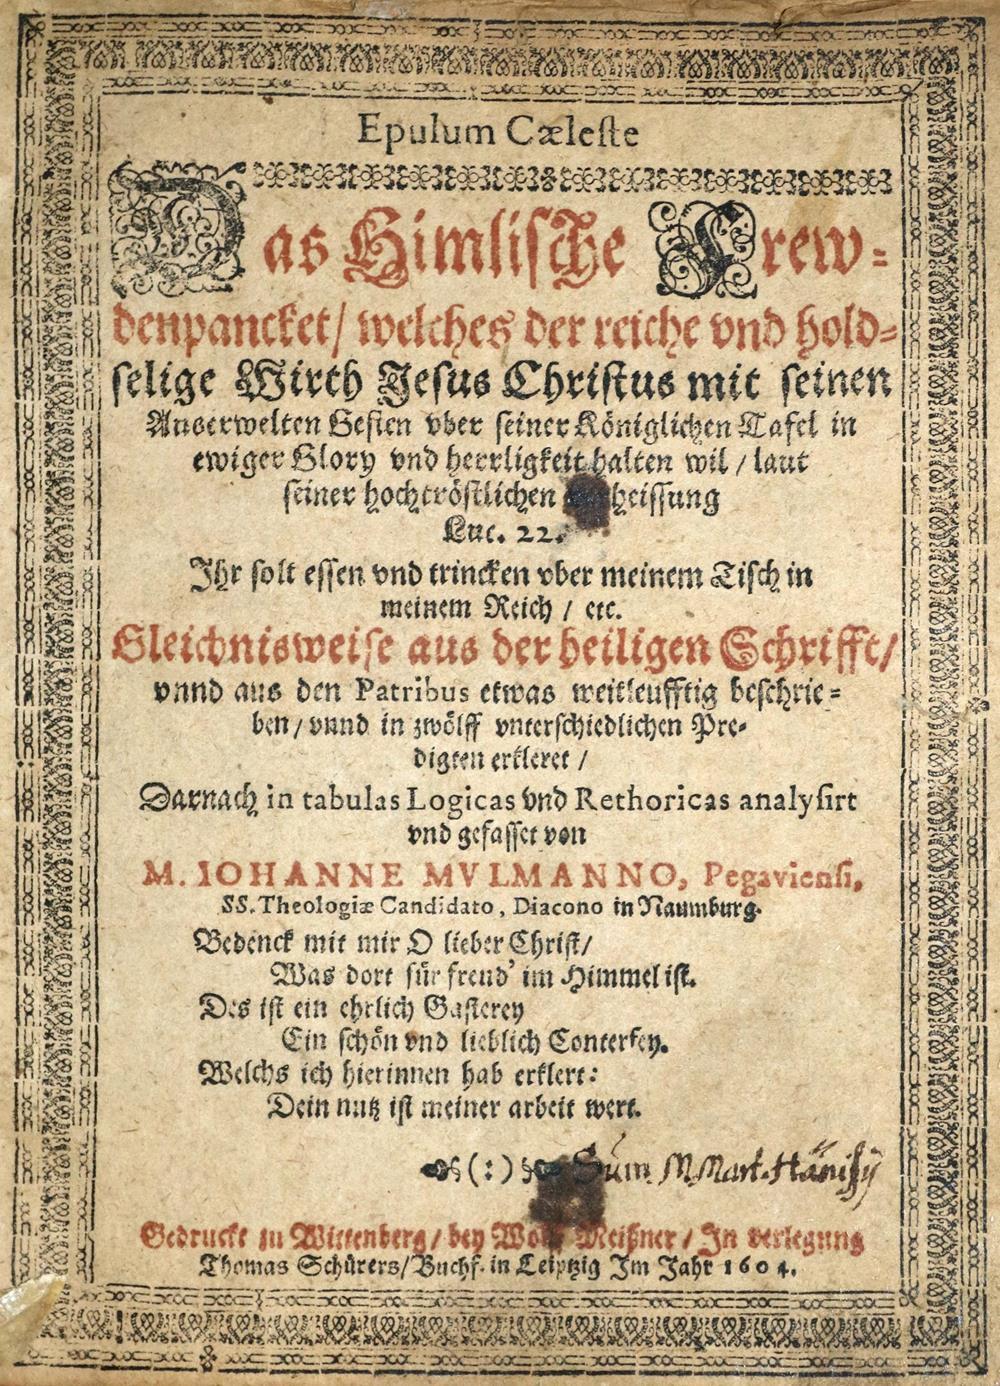 Epulum Cæleste
Das Himlische Frew-
denpancket/ welches der reiche vnd hold-
selige Wirth Jesus Christus mit seinen
Auserwelten Gesten vber seiner Königlichen Tafel in
ewiger Glory vnd herrligkeit halten wil / laut
seiner hochtröstlichen heissung
Luc. 22.
Ihr solt essen vnd trincken vber meinem Tisch in
meinem Reich / etc.
Gleichnisweise aus der heiligen Schrifft/
vnnd aus den Patribus etwas weitleufftig beschrie-
ben/ vnnd in zwölff vnterschiedlichen Pre-
digten erkleret /
Darnach in tabulas Logicas vnd Rethoricas analysirt
vnd gefasset von
M. IOHANNE MVLMANNO, Pegaviensi,
SS. Theologiæ Candidato, Diacono in Naumburg.
Bedenck mit mir O lieber Christ/
Was dort für freud' im Himmel ist.
Des ist ein ehrlich Gasterey
Ein schön vnd lieblich Conterfey.
Welchs ich hierinnen hab erklert:
Dein nutz ist meiner arbeit wert.
(:) Sum M Mart. Hänisij
Gedruckt zu Wittenberg/ bey Wolff Meißner/ In verlegung
Thomas Schürers/ Buchf. in Leiptzig Im Jahr 1604.